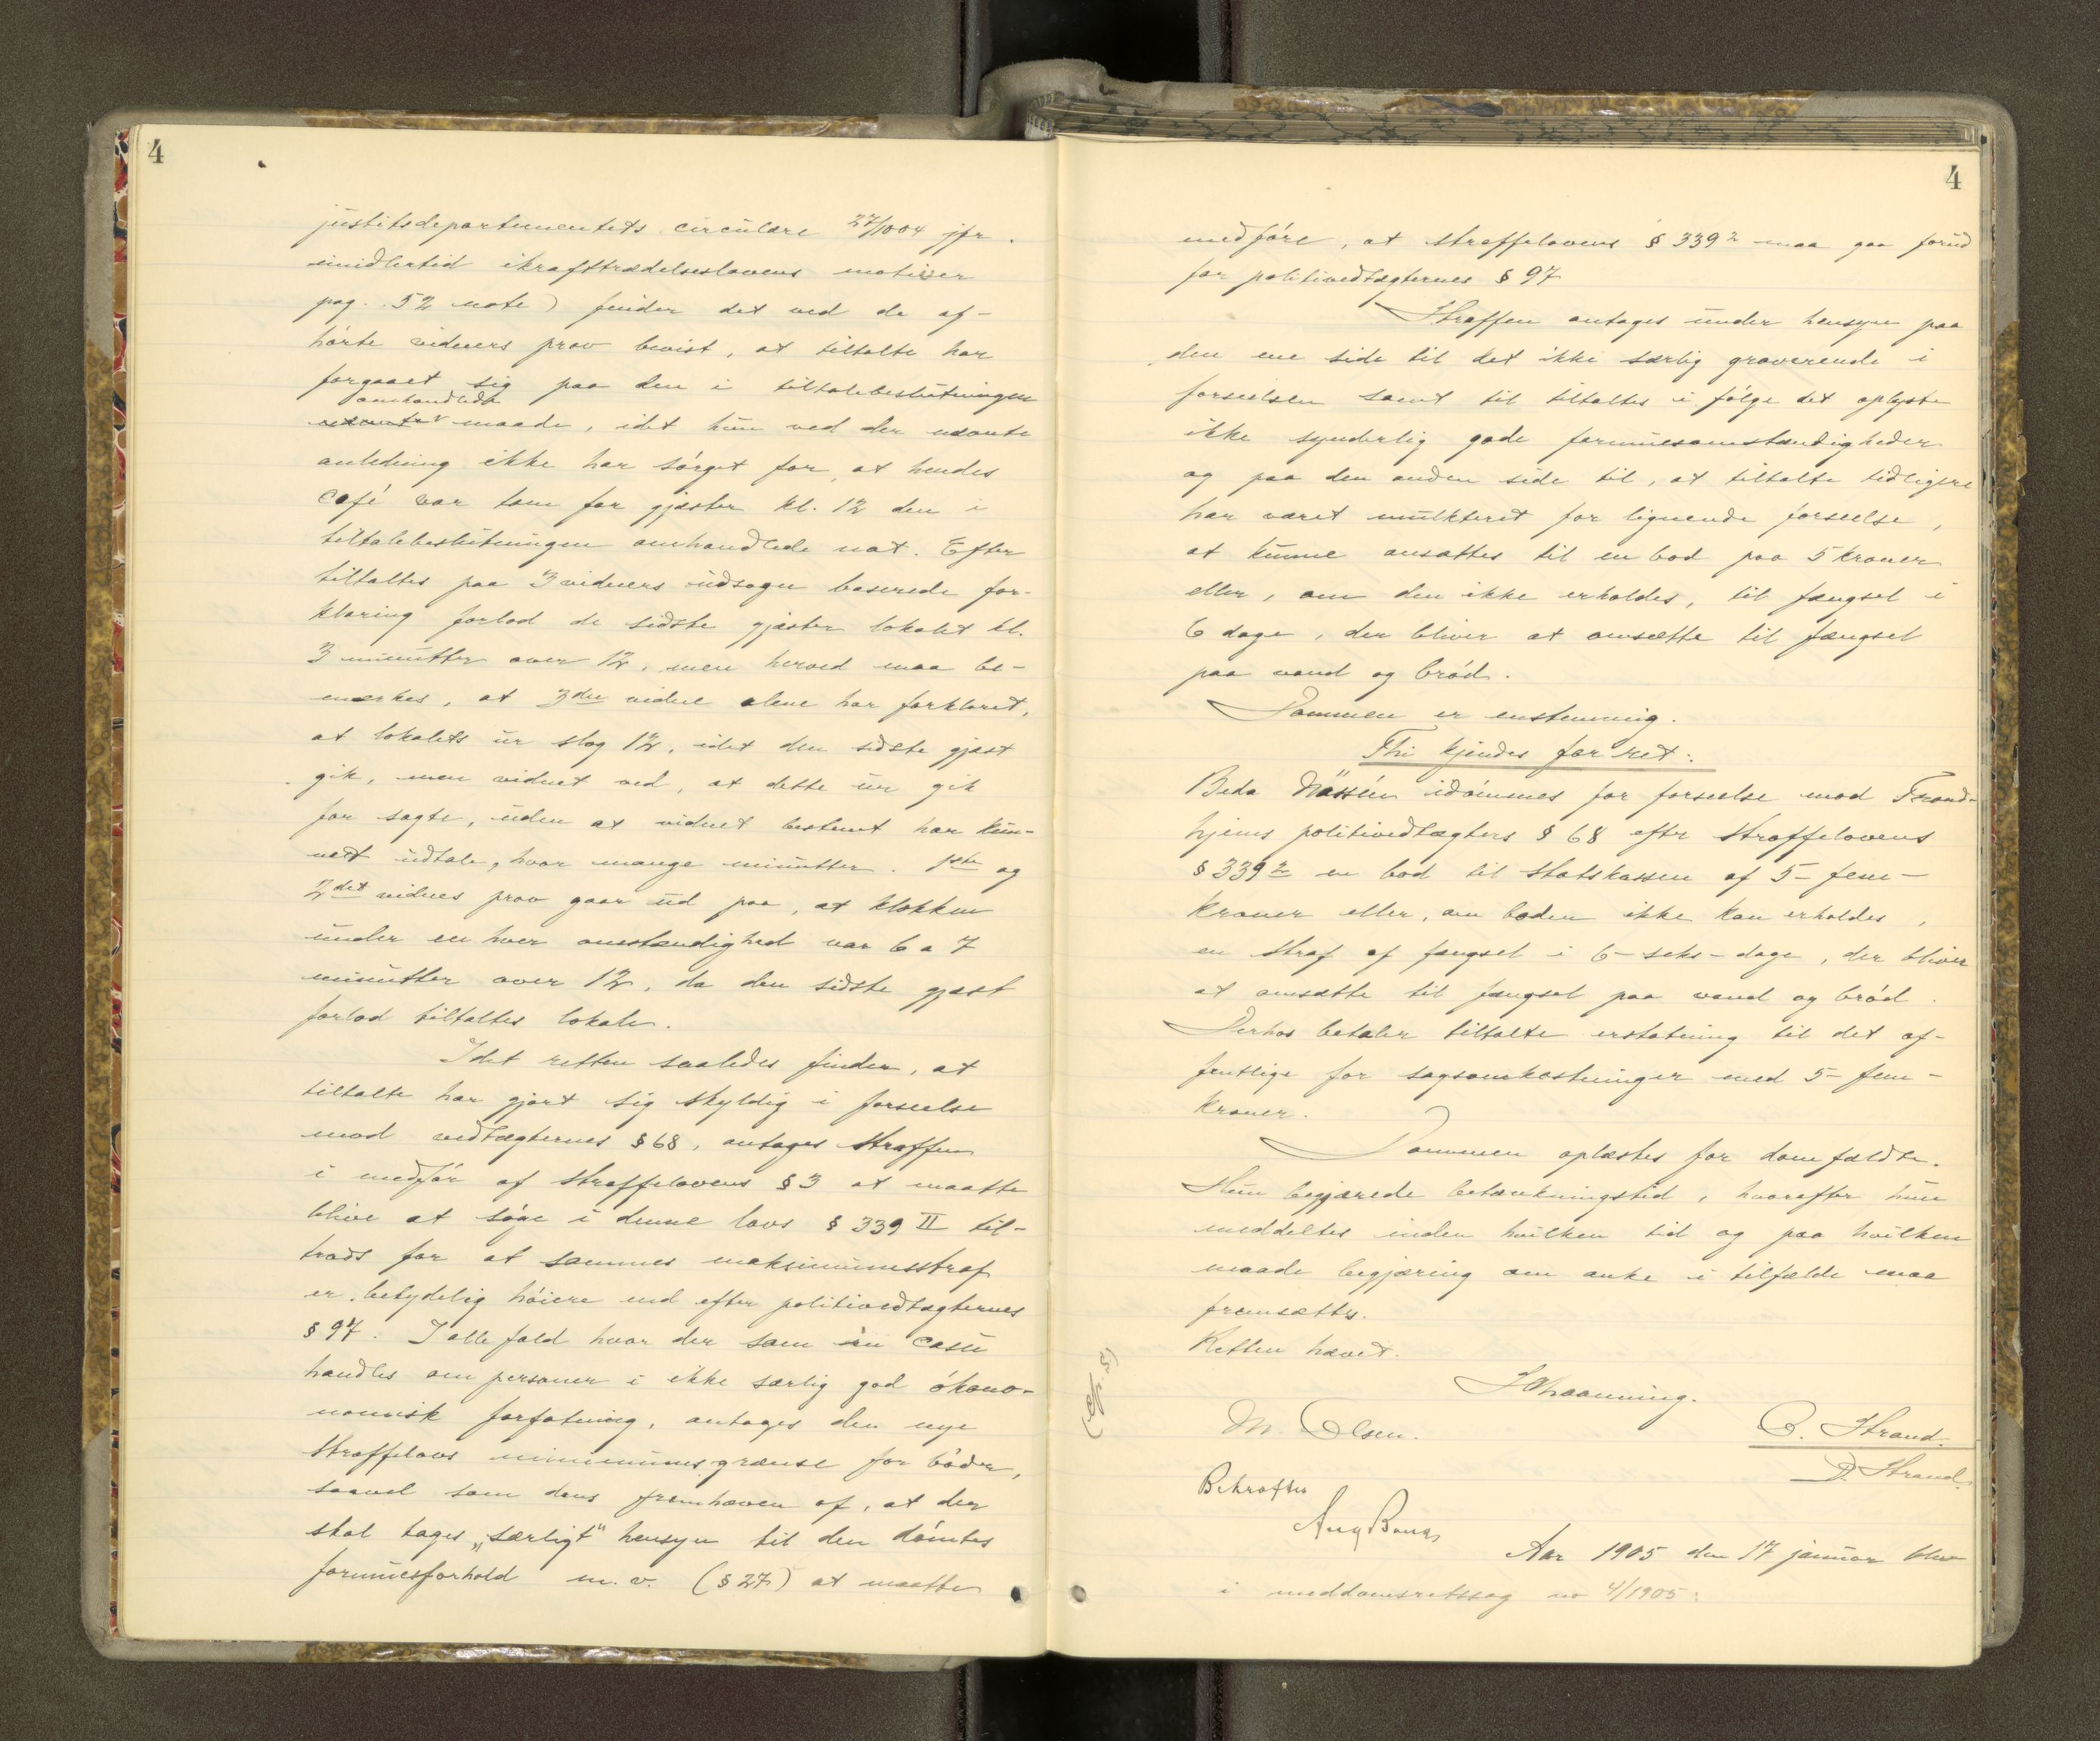 4
justitsdepartementets circulære 27/1004 jfr.
imidlertid ikrafttrædelseslovens motiver
pag. 52 note) finder det ved de af-
hörte vidners prov bevist, at tiltalte har
forgaaet sig paa den i tiltalebeslutningen
omhandlede
maade, idet hun ved den nævnte
anledning ikke har sörget for, at hendes
café var tom for gjæster kl. 12 den i
tiltalebeslutningen omhandlede nat. Efter
tiltaltes paa 3 vidners udsagn baserede for-
klaring forlod de sidste gjæster lokalet kl.
3 minutter over 12, men herved maa be-
mærkes, at 3die vidne alene har forklaret,
at lokalets ur slog 12, idet den sidste gjæst
gik, men vidnet ved, at dette ur gik
for sagte, uden at vidnet bestemt har kun-
net udtale, hvor mange minutter. 1ste og
2det vidnes prov gaar ud paa, at klokken
under en hver omstændighed var 6 a 7
minutter over 12, da den sidste gjæst
forlod tiltaltes lokale.
Idet retten saaledes finder, at
tiltalte har gjort sig skyldig i forseelse
mod vedtægternes § 68, antages straffen
i medför af straffelovens § 3 at maatte
blive at söge i denne lovs § 339 II til-
trods for at sammes maksimumsstraf
er betydelig höiere end efter politivedtægternes
§ 97. I alle fald hvor der som in casu
handles om personer i ikke særlig god ökono-
nomisk forfatning, antages den nye
straffelovs minimumsgrænse for böder,
saavel som dens fremhæven af, at der
skal tages „særligt" hensyn til den dömtes
formuesforhold m. v. (§ 27) at maatte
4
medföre, at straffelovens § 339 2 maa gaa forud
for politivedtægternes § 97
Straffen antages under hensyn paa
den ene side til det ikke særlig graverende i
forseelsen samt til tiltaltes i fölge det oplyste
ikke synderlig gode formuesomstændigheder
og paa den anden side til, at tiltalte tidligere
har været mulkteret for lignende forseelse,
at kunne ansættes til en bod paa 5 kroner
eller, om den ikke erholdes, til fængsel i
6 dage, der bliver at omsætte til fængsel
paa vand og bröd.
Dommen er enstemmig.
Thi kjendes for ret:
Beda Nässén idömmes for forseelse mod Trond-
hjems politivedtægters § 68 efter straffelovens
§ 339 2 en bod til statskassen af 5 - fem -
kroner eller, om boden ikke kan erholdes,
en straf af fængsel i 6 - seks - dage, der bliver
at omsætte til fængsel paa vand og bröd.
Derhos betaler tiltalte erstatning til det of-
fentlige for sagsomkostninger med 5 - fem -
kroner.
Dommen oplæstes for domfældte.
Hun begjærede betænkningstid, hvorefter hun
meddeltes inden hvilken tid og paa hvilken
maade begjæring om anke i tilfælde maa
fremsættes.
Retten hævet.
M. Olsen.
O. Strand.
D. Strand.
Bekræftes
Aar 1905 den 17 januar blev
i meddomsretssag no 4/1905: